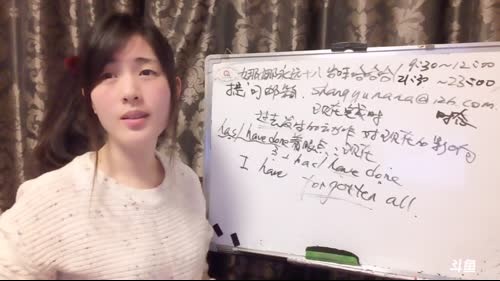 娜娜永远十八岁呀哈哈哈 19:30~12:00
21:30~23:00
提问邮箱: shangyunana@126.com
现在完成时
过去发生的动作 对现在的影响
has/have done 着眼点: 现在
? + has/have done
I have forgotten all.
斗鱼